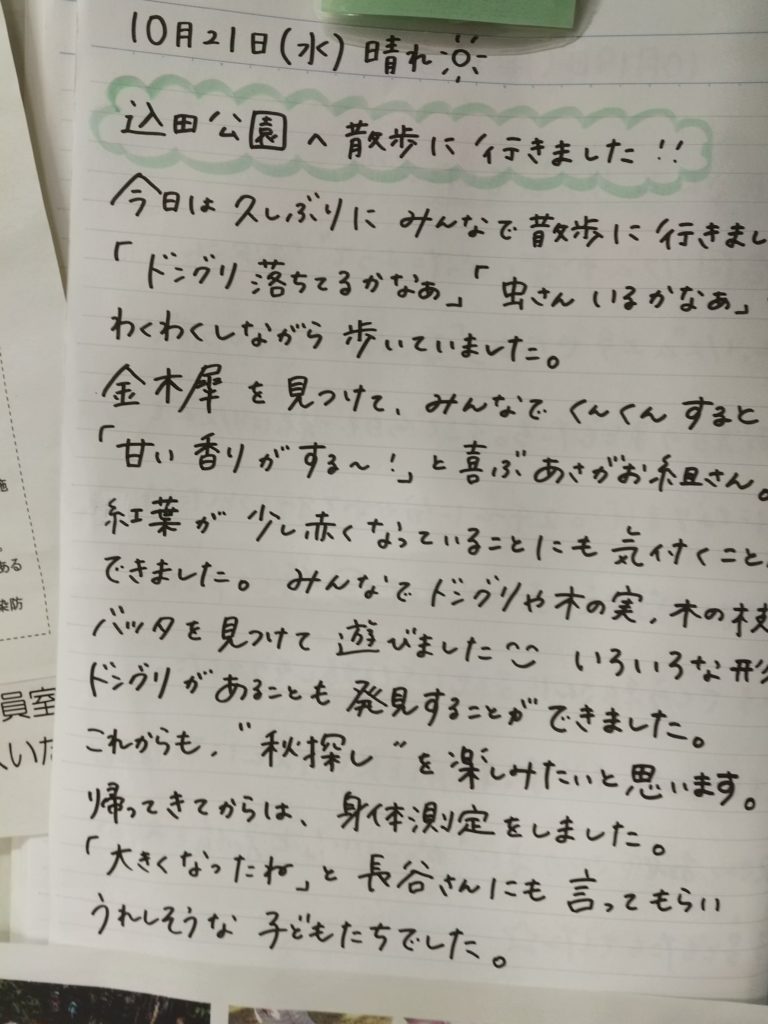 10月21日(水) 晴れ
込田公園へ散歩に行きました!!
今日は久しぶりにみんなで散歩に行きまし
「ドングリ落ちてるかなぁ」「虫さんいるかなぁ」
わくわくしながら歩いていました。
金木犀を見つけて、みんなでくんくんすると
「甘い香りがする～!」と喜ぶあさがお組さん。
紅葉が少し赤くなっていることにも気付くこと
できました。みんなでドングリや木の実、木の枝
バッタを見つけて遊びました いろいろな形
ドングリがあることも発見することができました。
これからも、"秋探し"を楽しみたいと思います。
帰ってきてからは、身体測定をしました。
「大きくなったね」と長谷さんにも言ってもらい
うれしそうな子どもたちでした。
施
ある
染防
員室
いた